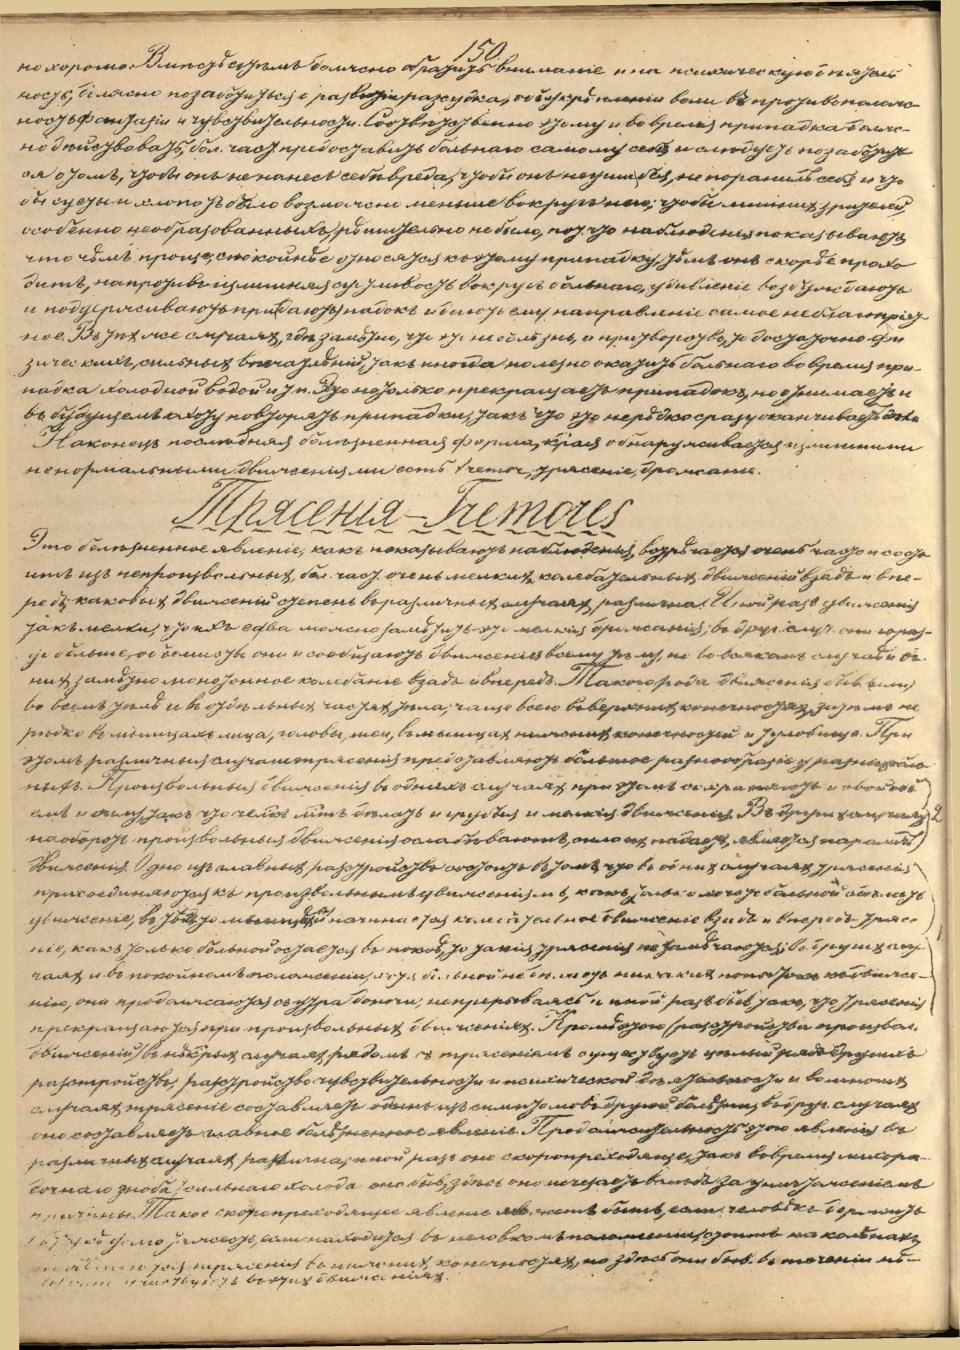 150
но хорошо. Вместе съ тѣмъ должно обратить вниманіе и на психическую дѣятель
ность, должно позаботиться о развитіи разсудка, объ укрѣпленіи воли въ противополож-
ность фантазіи и чувствительности. Соотвѣтственно этому и во время припадка долж-
но дѣйствовать, бол. част. предоставить больнаго самому себѣ и слѣдуетъ позаботит
ся о томъ, чтобы онъ не нанесъ себѣ вреда, чтобы онъ не ушибся, не поранилъ себя и что
бы суеты и хлопотъ было возможно меньше вокругъ него; чтобы лишнихъ зрителей,
особенно необразованныхъ, рѣшительно не было, пот. что наблюденія показываютъ,
что чѣмъ проще, спокойнѣе относятся къ этому припадку, тѣмъ онъ скорѣе прохо
дитъ, напротивъ излишняя суетливость вокругъ больнаго, удивленіе возбуждаютъ
и поддерживаютъ припадокъ и даютъ ему направленіе самое неблагопріят
ное. Въ тѣхъ же случаяхъ, гдѣ замѣтно, что это не болѣзнь, а притворство, то достаточно фи
зическихъ, сильныхъ впечатлѣній, такъ иногда полезно окатить больнаго во время при-
падка холодной водой и т п. Это не только прекращаетъ припадокъ, но отнимаетъ и
въ будущемъ охоту повторять припадки, такъ что это нерѣдко сразу оканчиваетъ дѣло
Наконецъ послѣдняя болѣзненная форма, котрая обнаруживается излишними
ненормальными движеніями есть tremor, трясеніе, дрожаніе.
Трясенія – Tremores
Это болѣзненное явленіе, какъ показываютъ наблюденія, встрѣчается очень часто и состо
итъ изъ непроизвольныхъ, бол. част. очень мелкихъ колебательныхъ движеній взадъ и впе-
редъ, каковыхъ движеній степень въ различныхъ случаяхъ различна. Иной разъ движенія
такъ мелки, что ихъ едва можно замѣтить это мелкія дрожанія; въ друг. случ. они гораз-
до больше, объемистѣе они и сообщаютъ движенія всему тѣлу, но во всякомъ случаѣ и въ
нихъ замѣтно монотонное колебаніе взадъ и впередъ. Такого рода движенія быв. или
во всемъ тѣлѣ и въ отдѣльныхъ частяхъ тѣла, чаще всего въ верхнихъ конечностяхъ, затѣмъ не
рѣдко въ мышцахъ лица, головы, шеи, въ мышцахъ нижнихъ конечностей и туловища. При
этомъ различныя случаи трясенія представляютъ большое разнообразіе у разныхъ боль
ныхъ. Произвольныя движенія въ однихъ случаяхъ при этомъ сохраняютъ и свой объ
емъ и силу, такъ что человѣкъ мож. дѣлать и грубыя и мелкія движенія. Въ другихъ случаяхъ 2
наоборотъ произвольныя движенія ослабѣваютъ, сила ихъ падаетъ, является параличъ
движенія. Одно изъ главныхъ разстройствъ состоитъ въ томъ, что въ однихъ случаяхъ трясенія
присоединяются къ произвольнымъ движеніямъ, какъ только хочетъ больной сдѣлать
движеніе, въ этой мышцѣ начинается колебательное движеніе взадъ и впередъ трясе-
ніе, какъ только больной остается въ покоѣ, то такія трясенія не замѣчаются; въ другихъ слу- 1
чаяхъ и въ покойномъ положеніи, хотя больной не дѣлаетъ никакихъ попытокъ къ движе-
нію, они продолжаются съ утра до ночи, непрерываясь и иной разъ быв. такъ, что трясенія
прекращаются при произвольныхъ движеніяхъ. Кромѣ того (разстройства произвол.
движеній) въ нѣкоторыхъ случаяхъ рядомъ съ трясеніемъ существуетъ цѣлый рядъ другихъ
разстройствъ, разстройство чувствительности и психической дѣятельности и во многихъ
случаяхъ трясеніе составляетъ одинъ изъ симптомовъ другой болѣзни, въ друг. случаяхъ
оно составляетъ главное болѣзненное явленіе. Продолжительность этого явленія въ
различныхъ случаяхъ различна; иной разъ оно скоропреходяще, такъ во время лихора-
дочнаго зноба, сильнаго холода оно быв., здѣсь оно исчезаетъ вслѣдъ за уничтоженіемъ
причины. Такое скоропреходящее явленіе можетъ быть, если человѣкъ держитъ
тяжесть, если находится въ неловкомъ положеніи, стоитъ на колѣнахъ,
трясенія въ нижнихъ конечностяхъ, но здѣсь они быв. въ теченіи нѣ-
въ этихъ движеніяхъ.